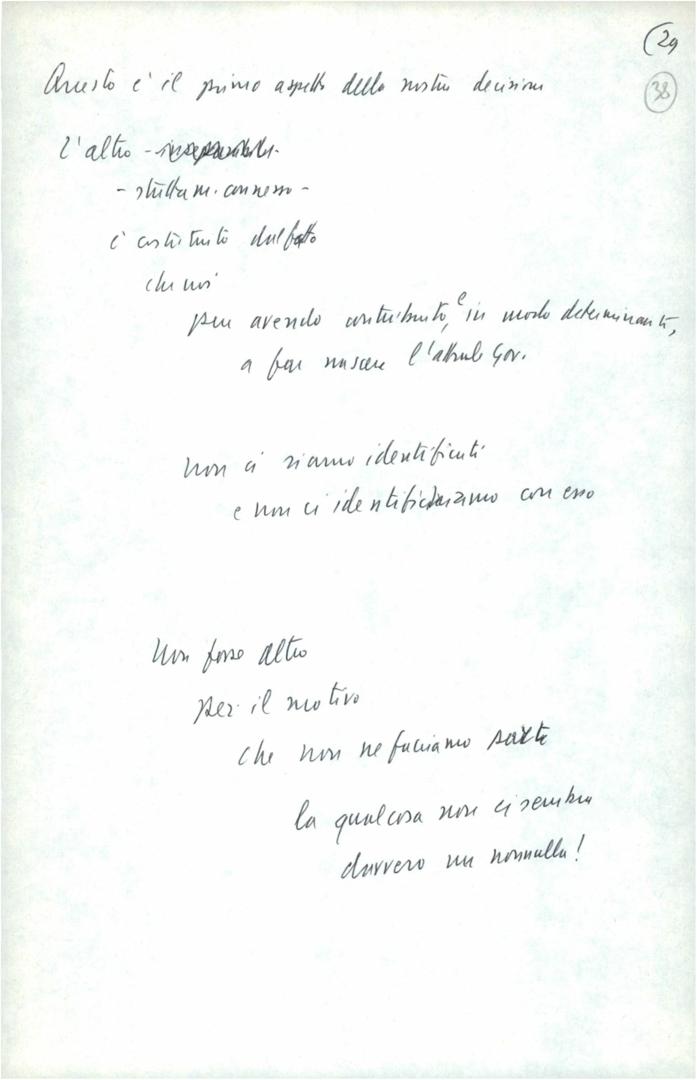 (29
38
Questo è il primo aspetto della nostra decisione
L'altro - inseparabile -
- strettam. connesso -
è costituito dal fatto
che noi
pur avendo contribuito, e in modo determinante,
a far nascere l'attuale Gov.
non ci siamo identificati
e non ci identifichiamo con esso
Non fosse altro
per il motivo
che non ne facciamo parte
la qualcosa non ci sembra
davvero un nonnulla!